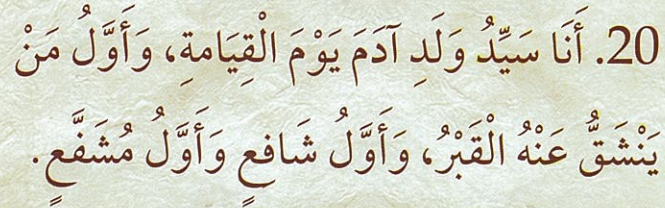 20. أَنَا سَيِّدُ وَلَدِ آدَمَ يَوْمَ الْقِيَامَةِ، وَأَوَّلُ مَنْ
يَنْشَقُّ عَنْهُ الْقَبْرُ، وَأَوَّلُ شَافِعٍ وَأَوَّلُ مُشَفَّعٍ.